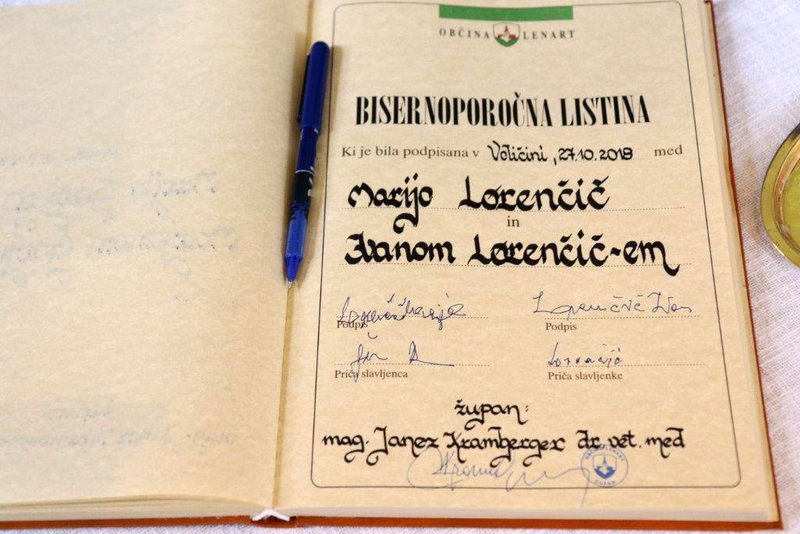 OBČINA LENART
BISERNOPOROČNA LISTINA
Ki je bila podpisana v Voličini, 27.10.2018 med
Marijo Lorenčič
in
Ivanom Lorenčič-em
Podpis Podpis
Priča slavljenca Priča slavljenke
župan:
mag. Janez Kramberger dr. vet. med